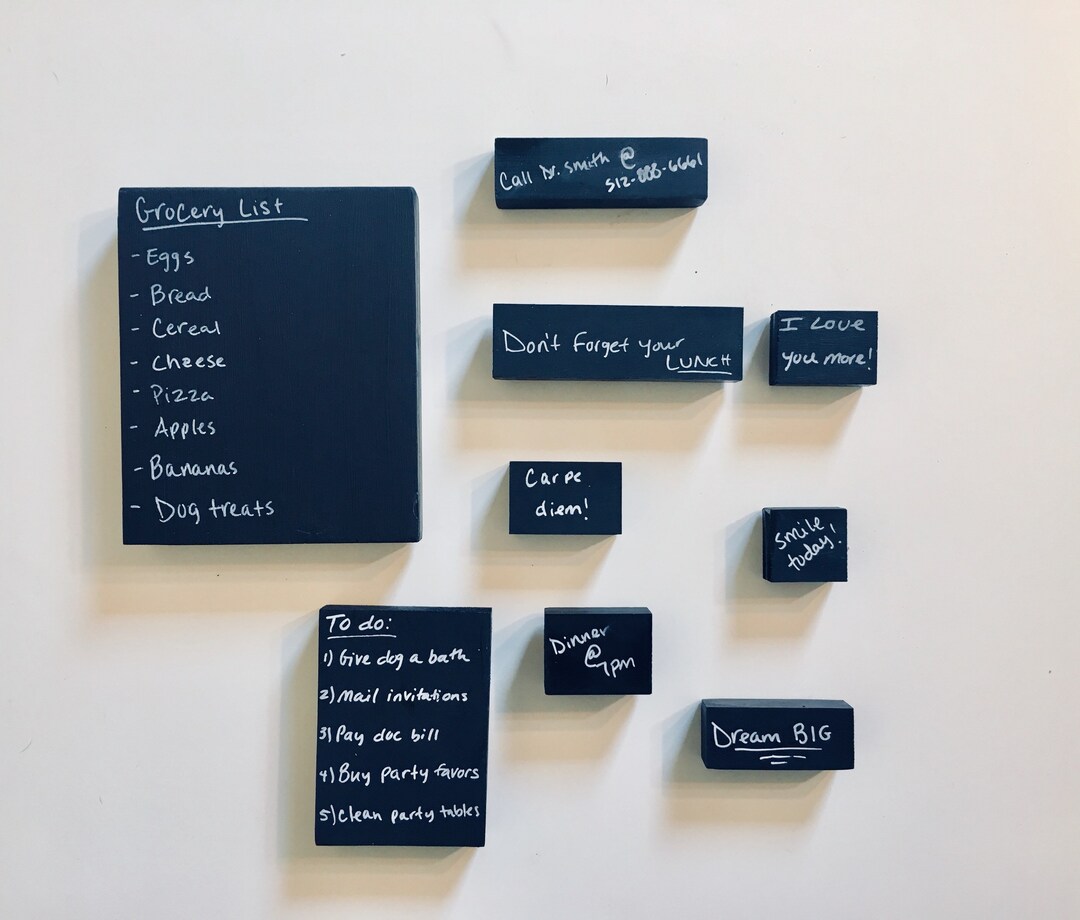 Grocery List
- Eggs
- Bread
- Cereal
- Cheese
- Pizza
- Apples
- Bananas
- Dog treats
Call Dr. Smith @
Don't Forget your
LUNCH
I Love
you more!
Carpe
diem!
smile
today!
To do:
1) Give dog a bath
2) Mail invitations
3) Pay doc bill
4) Buy party favors
5) Clean party tables
Dinner
@
7pm
Dream BIG